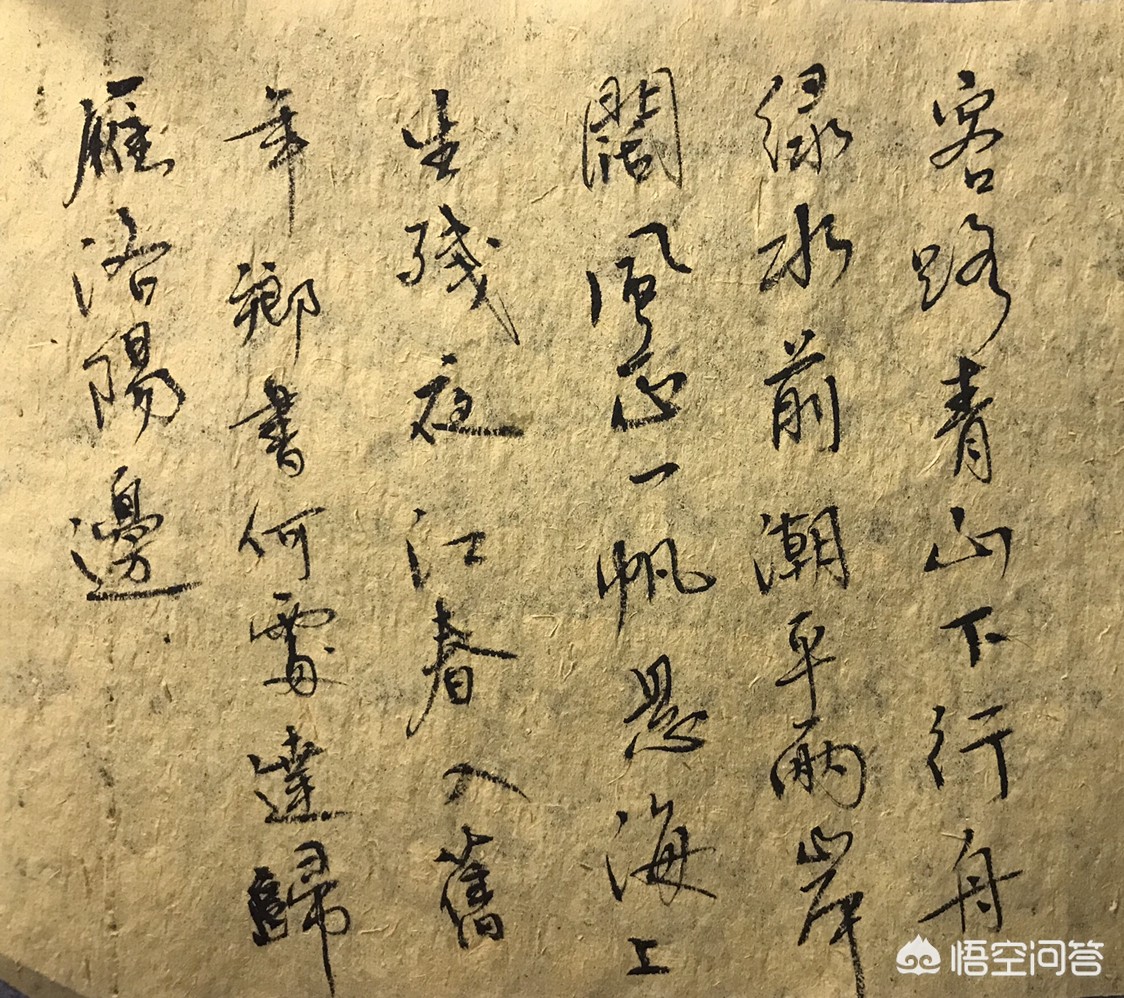 客路青山下行舟
绿水前潮平兩岸
闊風正一帆悬海上
生残夜江春入舊
年鄉書何處達歸
雁洛陽邊
悟空问答